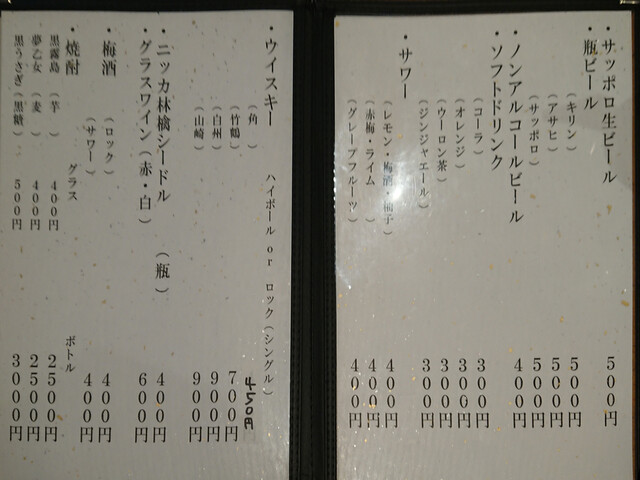 ・サッポロ生ビール 500円
・瓶ビール
（キリン） 500円
（アサヒ） 500円
（サッポロ） 500円
・ノンアルコールビール 400円
・ソフトドリンク
（コーラ） 300円
（オレンジ） 300円
（ウーロン茶） 300円
（ジンジャエール） 300円
・サワー
（レモン・梅酒・柚子） 400円
（赤梅・ライム） 400円
（グレープフルーツ） 400円
・ウイスキー ハイボール or ロック（シングル）
（角） 450円
（竹鶴） 700円
（白州） 900円
（山崎） 900円
・ニッカ林檎シードル（瓶） 400円
・グラスワイン（赤・白） 600円
・梅酒（ロック） 400円
（サワー） 400円
・焼酎 グラス ボトル
黒霧島（芋） 400円 2500円
夢乙女（麦） 400円 2500円
黒うさぎ（黒糖） 500円 3000円